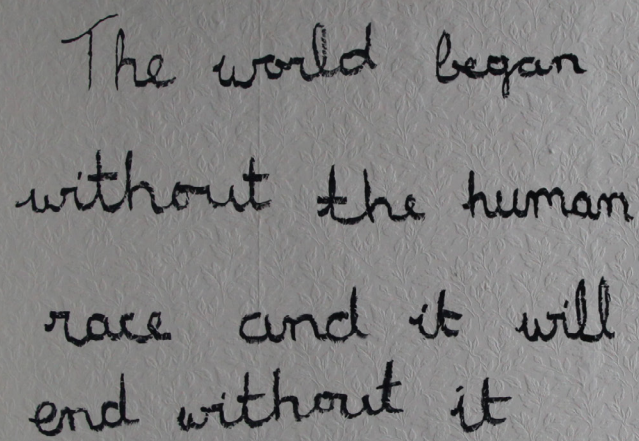 The world began
without the human
race and it will
end without it